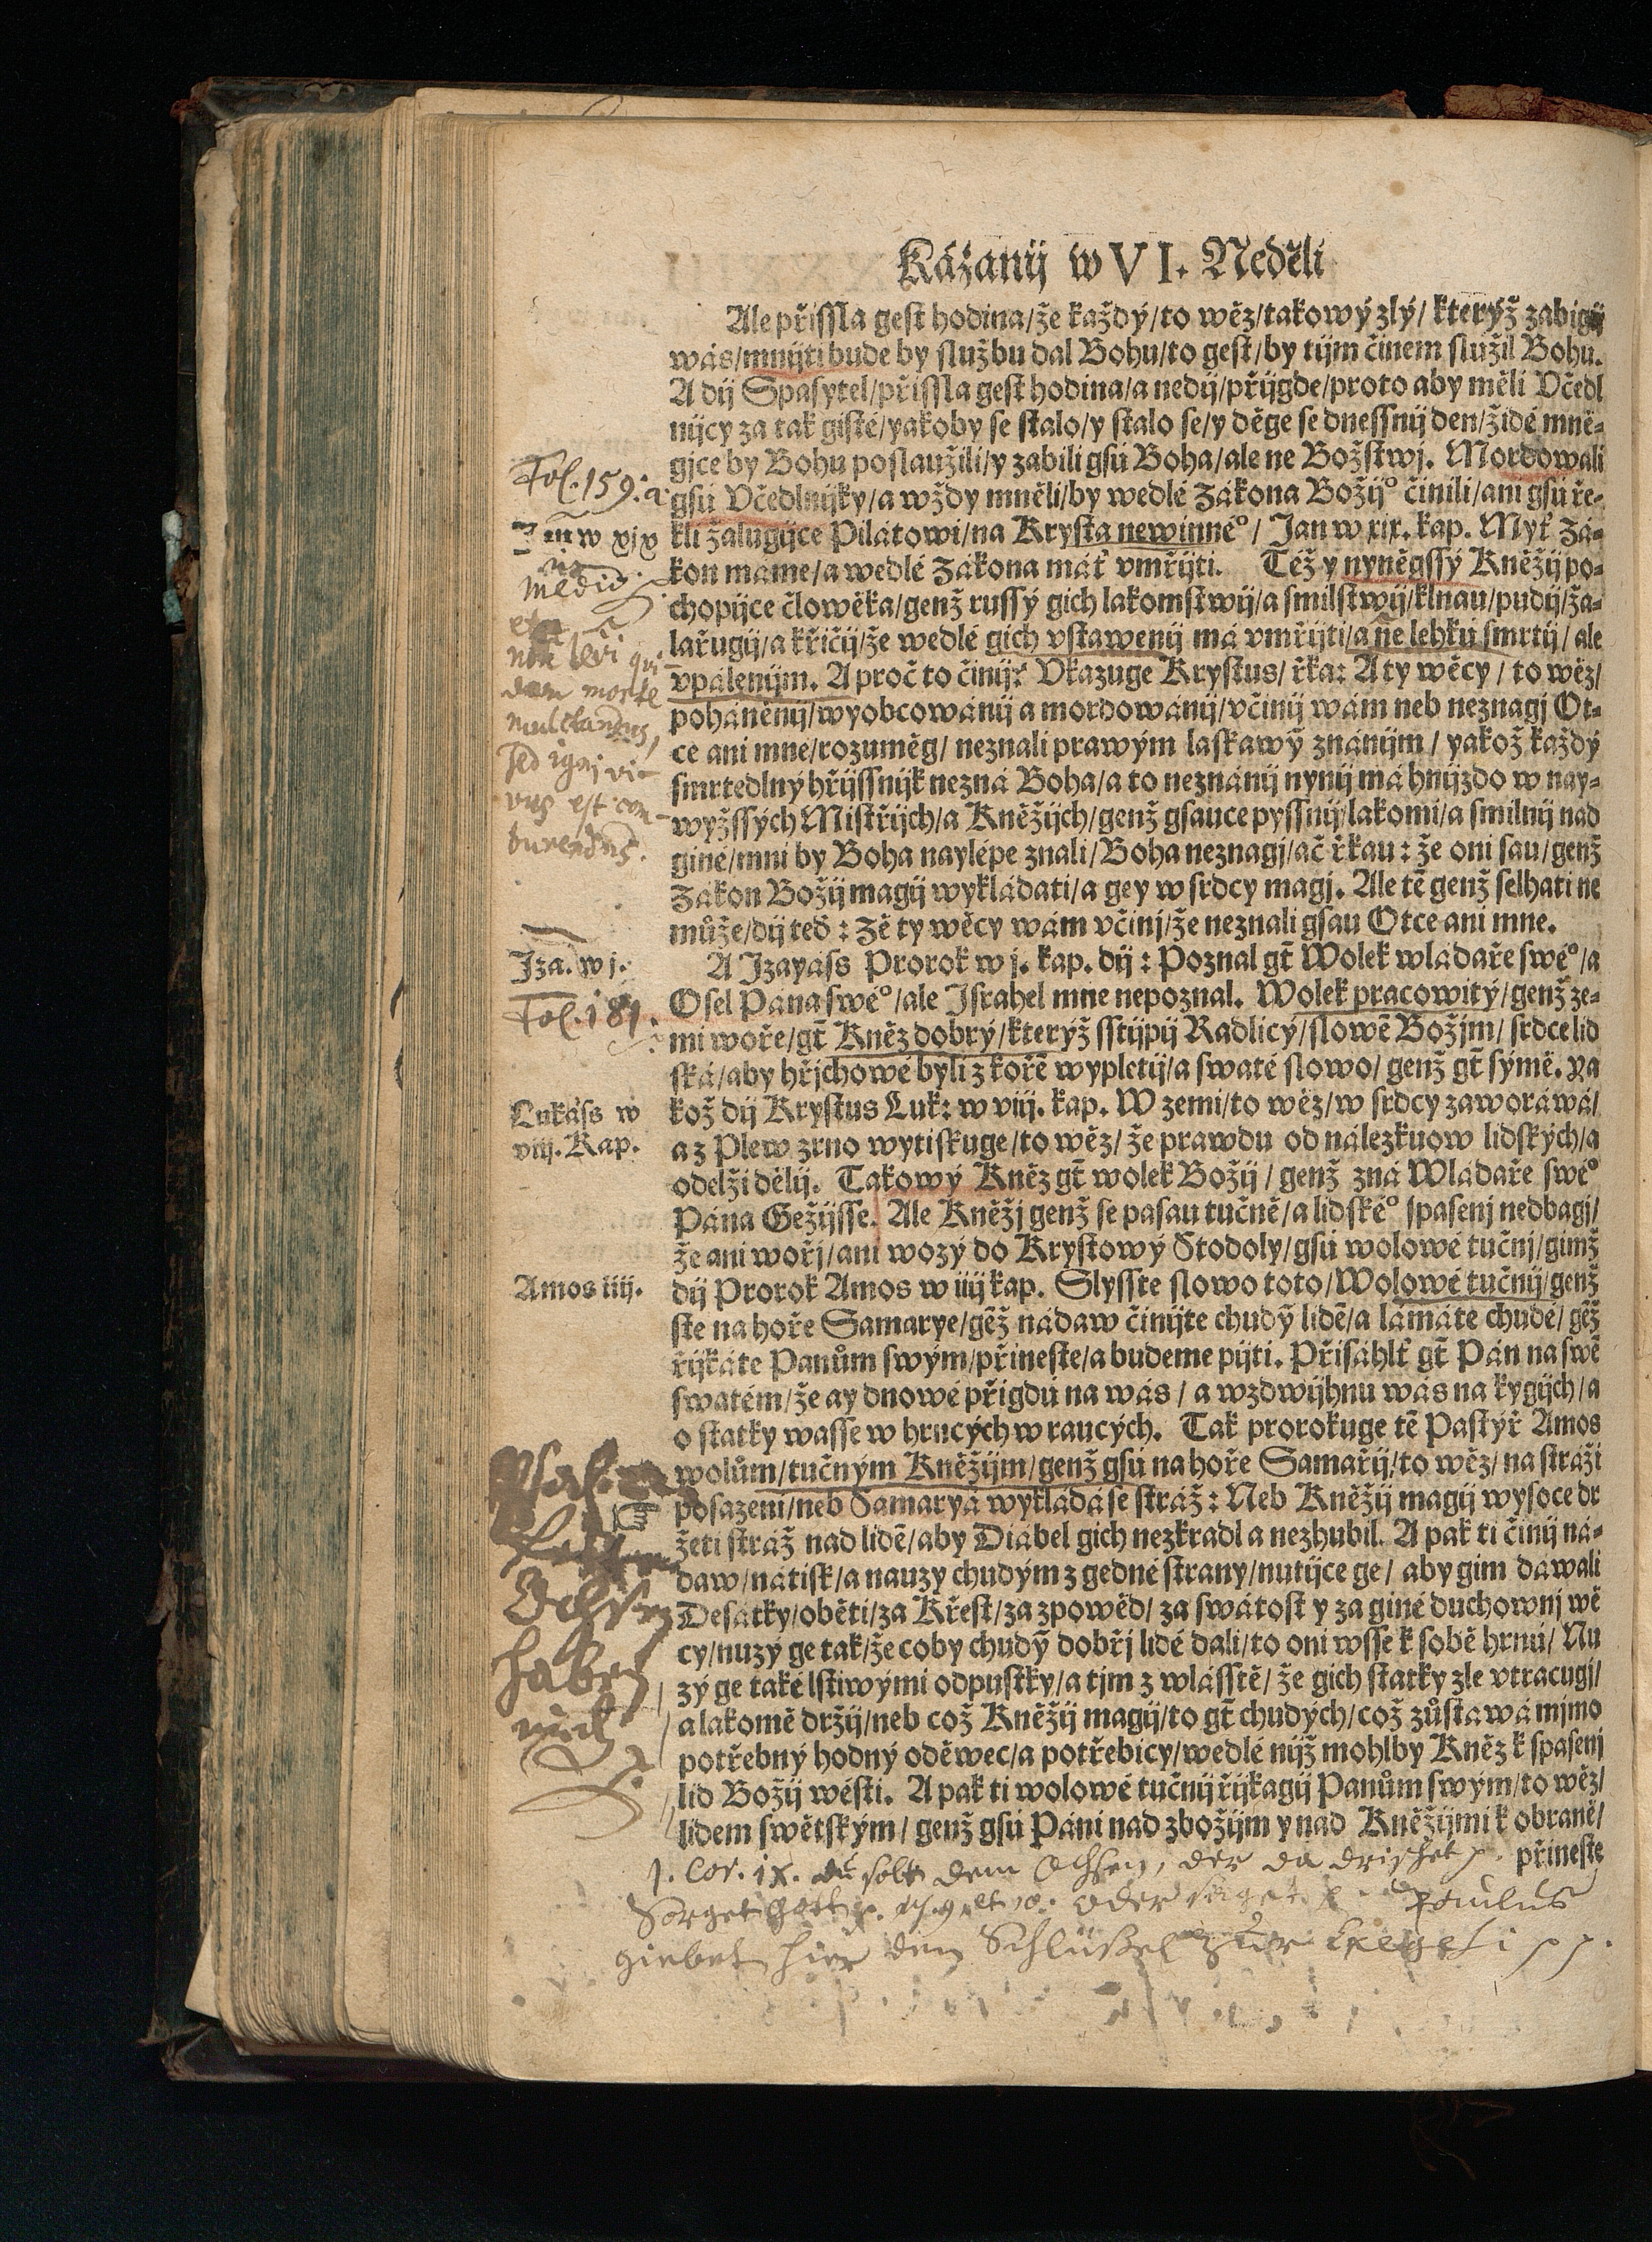 Kázanij w VI. Neděli
Ale přissla gest hodina/že každý/to wěz/takowý zlý/kterýž zabigij
wás/mnijti bude by službu dal Bohu/to gest/by tijm činem slúžil Bohu.
A dij Spasytel/přissla gest hodina/a nedij/přijgde/proto aby měli Včedl
nijcy za tak gisté/yakoby se stalo/y stalo se/y děge se dnessnij den/židé mně-
gjce by Bohu poslaužili/y zabili gsú Boha/ale ne Božstwj. Mordowali
gsú Včedlnijky/a wždy mněli/by wedlé Zákona Božij° činili/ani gsú ře-
kli žalugijce Pilátowi/na Krysta newinné°/ Jan w xix. kap. Myť Zá-
kon máme/a wedlé Zákona máť vmřijti. Též y nyněgssý Kněžij po-
chopijce člowěka/genž russý gich lakomstwij/a smilstwij/klnau/pudij/ža-
lařugij/a křičij/že wedlé gich vstawenij má vmřijti/a ne lehkú smrtij/ ale
vpálenijm. A proč to činij? Vkazuge Krystus/ řka: A ty wěcy / to wěz/
poháněnij/wyobcowánij a mordowánij/včinij wám neb neznagj Ot-
ce ani mne/rozuměg/ neznali prawým laskawỹ znánijm / yakož každý
smrtedlný hřijssnijk nezná Boha/a to neznánij nynij má hnijzdo w nay-
wyžssých Mistřijch/a Kněžijch/genž gsauce pyssnij/lakomi/a smilnij nad
giné/mni by Boha naylépe znali/Boha neznagj/ač řkau: že oni sau/genž
Zákon Božij magij wykládati/a gey w srdcy magj. Ale tẽ genž selhati ne
může/dij teď: Zě ty wěcy wám včinj/že neznali gsau Otce ani mne.
A Izayass Prorok w j. kap. dij: Poznal gt̃ Wolek wládaře swé°/a
Osel Pána swé°/ale Israhel mne nepoznal. Wolek pracowitý/genž ze-
mi woře/gt̃ Kněz dobrý/kterýž sstijpij Radlicý/slowẽ Božjm/ srdce lid
ská/aby hřjchowé byli z kořẽ wypletij/a swaté slowo/ genž gt̃ sýmě. Ya
kož dij Krystus Luk: w viij. kap. W zemi/to wěz/w srdcy zaworáwá/
a z Plew zrno wytiskuge/to wěz/ že prawdu od nálezkuow lidských/a
od elži dělij. Takowý Kněz gt̃ wolek Božij / genž zná Wládaře swé°
Pána Gežijsse. Ale Kněžj genž se pasau tučně/a lidské° spasenj nedbagj/
že ani wořj/ani wozý do Krystowý Stodoly/gsú wolowé tučnj/gimž
dij Prorok Amos w iiij kap. Slysste slowo toto/Wolowé tučnij/genž
ste na hoře Samarye/gẽž nádaw činijte chudỹ lidẽ/a lámáte chudé/ gẽž
řijkáte Panům swým/přineste/a budeme pijti. Přisáhlť gt̃ Pán na swẽ
swatém/že ay dnowé přigdú na wás / a wzdwijhnu wás na kygijch/a
o statky wasse w hrncých w raucých. Tak prorokuge tẽ Pastýř Amos
wolům/tučným Kněžijm/genž gsú na hoře Samařij/to wěz/ na stráži
posazeni/neb Samaryá wykládá se stráž: Neb Kněžij magij wysoce dr
žeti stráž nad lidẽ/aby Diábel gich nezkradl a nezhubil. A pak ti činij ná-
daw/nátisk/a nauzy chudým z gedné strany/nutijce ge/ aby gim dawali
Desátky/oběti/za Křest/za zpowěd/ za swátost y za giné duchownj wě
cy/nuzý ge tak/že coby chudỹ dobřj lidé dali/to oni wsse k sobě hrnú/ Nu
zý ge také lstiwými odpustky/a tjm z wlásstě/ že gich statky zle vtracugj/
a lakomě držij/neb což Kněžij magij/to gt̃ chudých/což zůstáwá mjmo
potřebný hodný oděwec/a potřebicy/wedlé nijž mohlby Kněz k spasenj
lid Božij wésti. A pak ti wolowé tučnij řijkagij Panům swým/to wěz/
lidem swětským/ genž gsú Páni nad zbožijm y nad Kněžijmi k obraně/
přineste
Fol. 159. a
Jan w xix
non levi qui
dam morte
mulctandus,
sed igni vi-
vus est com-
burendus.
Iza. w j.
Fol. 181.
Lukáss w
viij. Kap.
Amos iiij.
Ochsen
haben
mich
1. Cor. ix. du solt dem Ochsen, der da drischet
Sorget Gott oder saget Paulus
giebet hier den Schlüßel zur Exegesi